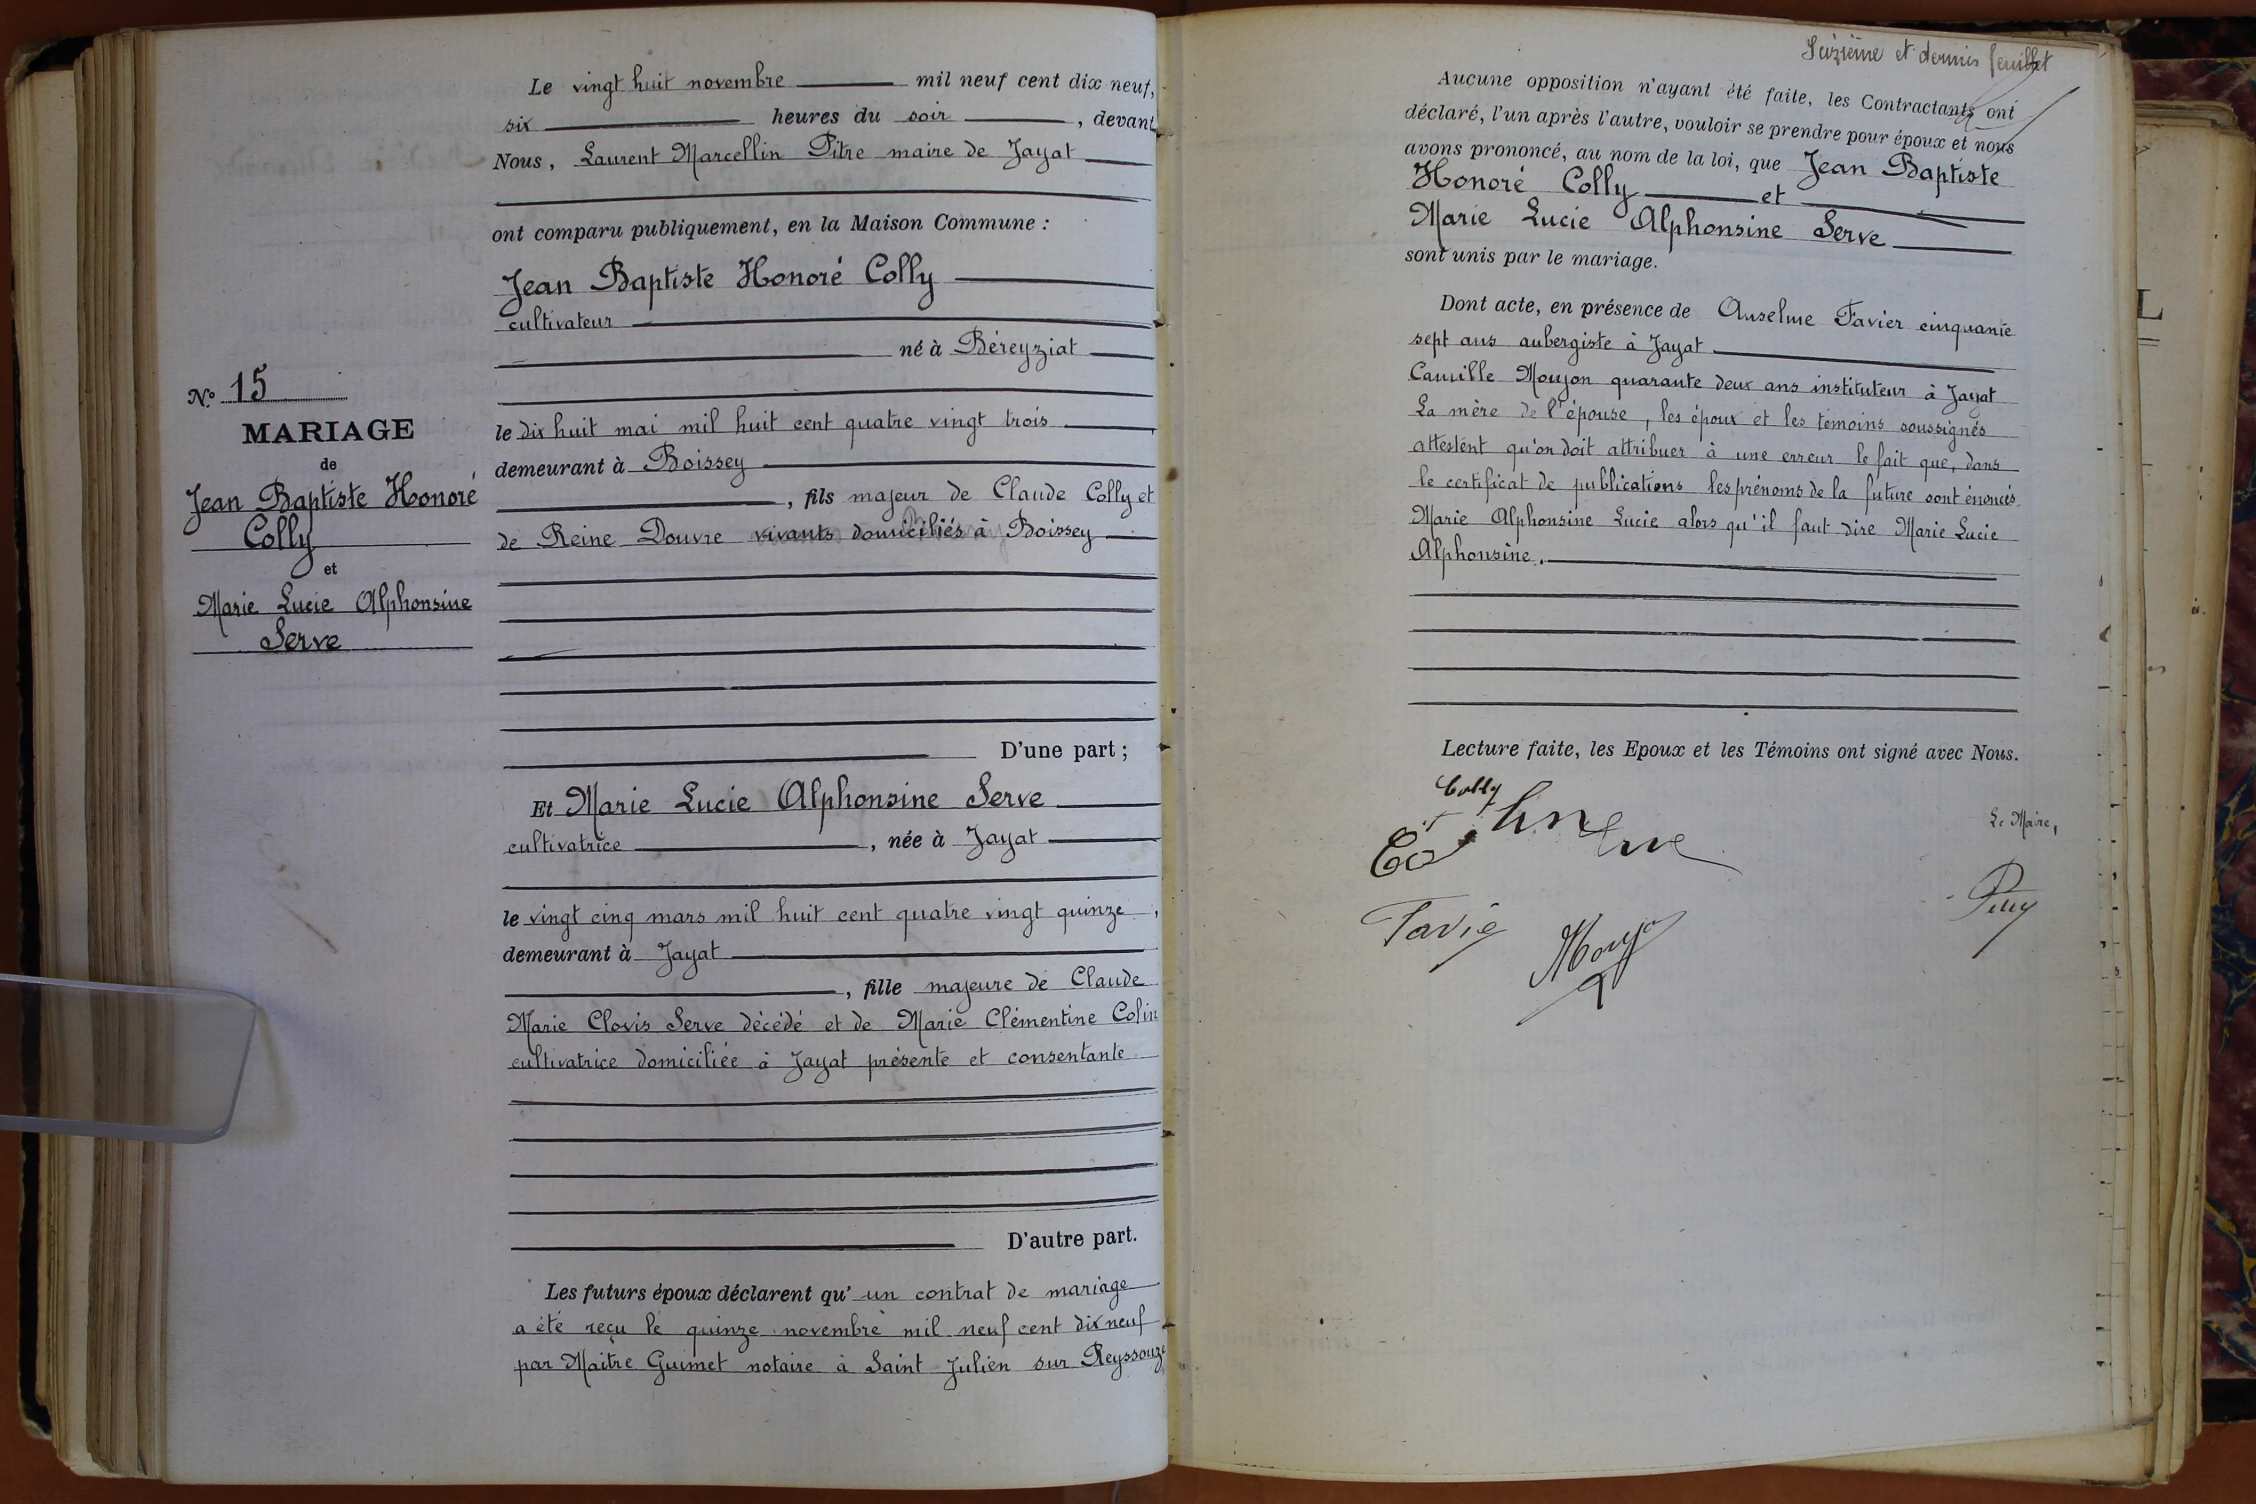 Nº 15
MARIAGE
de
Jean Baptiste Honoré
Colly
et
Marie Lucie Alphonsine
Serve
Le vingt huit novembre mil neuf cent dix neuf,
six heures du soir, devant
Nous, Laurent Marcellin Pitre maire de Jayat
ont comparu publiquement, en la Maison Commune :
Jean Baptiste Honoré Colly
cultivateur
né à Béreyziat
le dix huit mai mil huit cent quatre vingt trois
demeurant à Boissey
, fils majeur de Claude Colly et
de Reine Douvre vivants domiciliés à Boissey
D'une part ;
Et Marie Lucie Alphonsine Serve
cultivatrice, née à Jayat
le vingt cinq mars mil huit cent quatre vingt quinze,
demeurant à Jayat
, fille majeure de Claude
Marie Clovis Serve décédé et de Marie Clémentine Colin
cultivatrice domiciliée à Jayat présente et consentante
D'autre part.
Les futurs époux déclarent qu' un contrat de mariage
a été reçu le quinze novembre mil neuf cent dix neuf
par Maitre Guimet notaire à Saint Julien sur Reyssouze
Seizième et dernier feuillet
Aucune opposition n'ayant été faite, les Contractants ont
déclaré, l'un après l'autre, vouloir se prendre pour époux et nous
avons prononcé, au nom de la loi, que Jean Baptiste
Honoré Colly et
Marie Lucie Alphonsine Serve
sont unis par le mariage.
Dont acte, en présence de Anselme Favier cinquante
sept ans aubergiste à Jayat
Camille Moujon quarante deux ans instituteur à Jayat
La mère de l'épouse, les époux et les témoins soussignés
attestent qu'on doit attribuer à une erreur le fait que, dans
le certificat de publications les prénoms de la future sont énoncés
Marie Alphonsine Lucie alors qu'il faut dire Marie Lucie
Alphonsine.
Lecture faite, les Epoux et les Témoins ont signé avec Nous.
Colly
Le Maire,
Favie